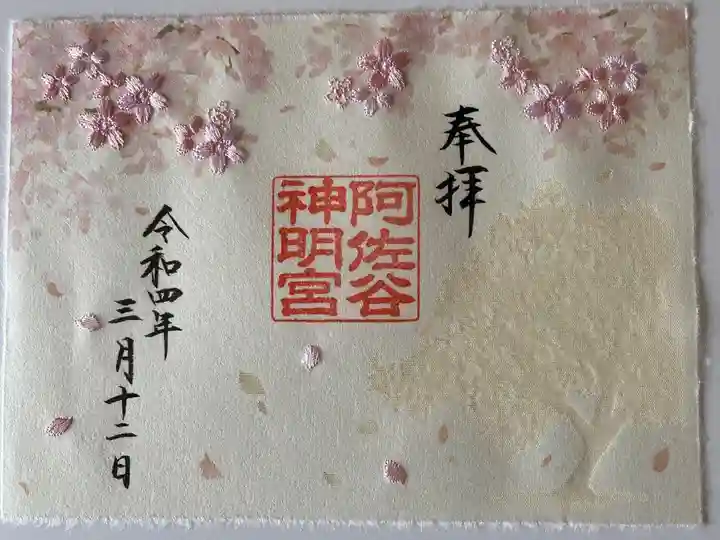 奉拝
阿佐谷
神明宮
令和四年
三月十二日